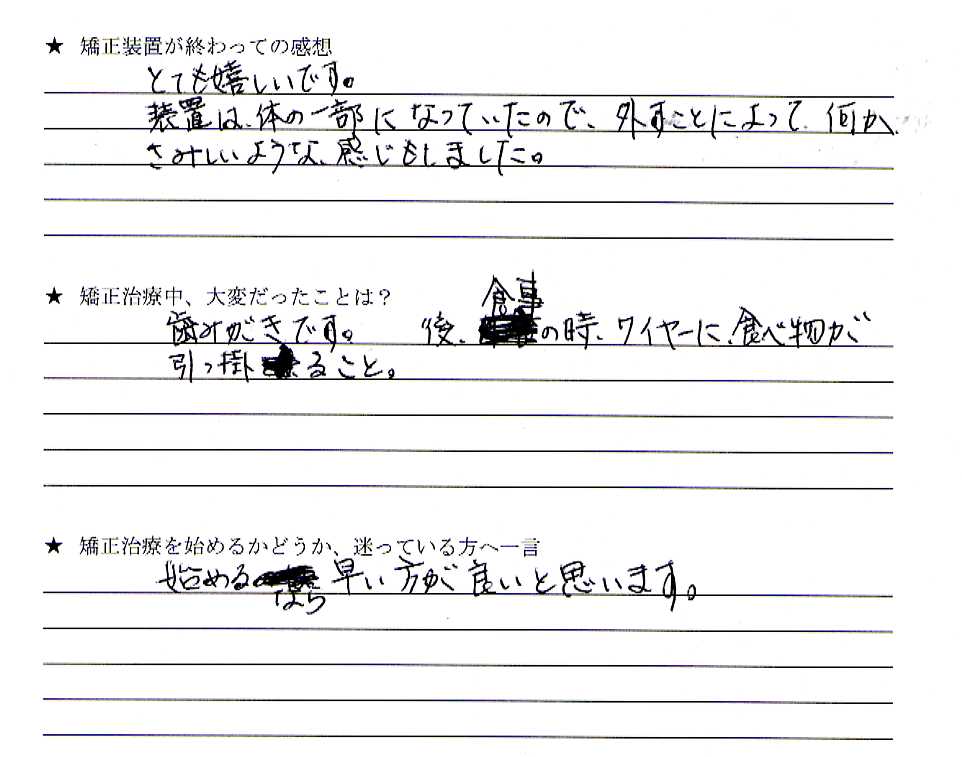 ★ 矯正装置が終わっての感想
とても嬉しいです。
装置は、体の一部になっていたので、外すことによって、何か、
さみしいような、感じもしました。
★ 矯正治療中、大変だったことは？
歯みがきです。 後、食事の時、ワイヤーに、食べ物が
引っ掛ること。
★ 矯正治療を始めるかどうか、迷っている方へ一言
始めるなら早い方が良いと思います。